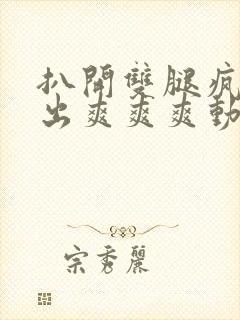 扒開雙腿瘋
出爽爽爽動
宗秀麗